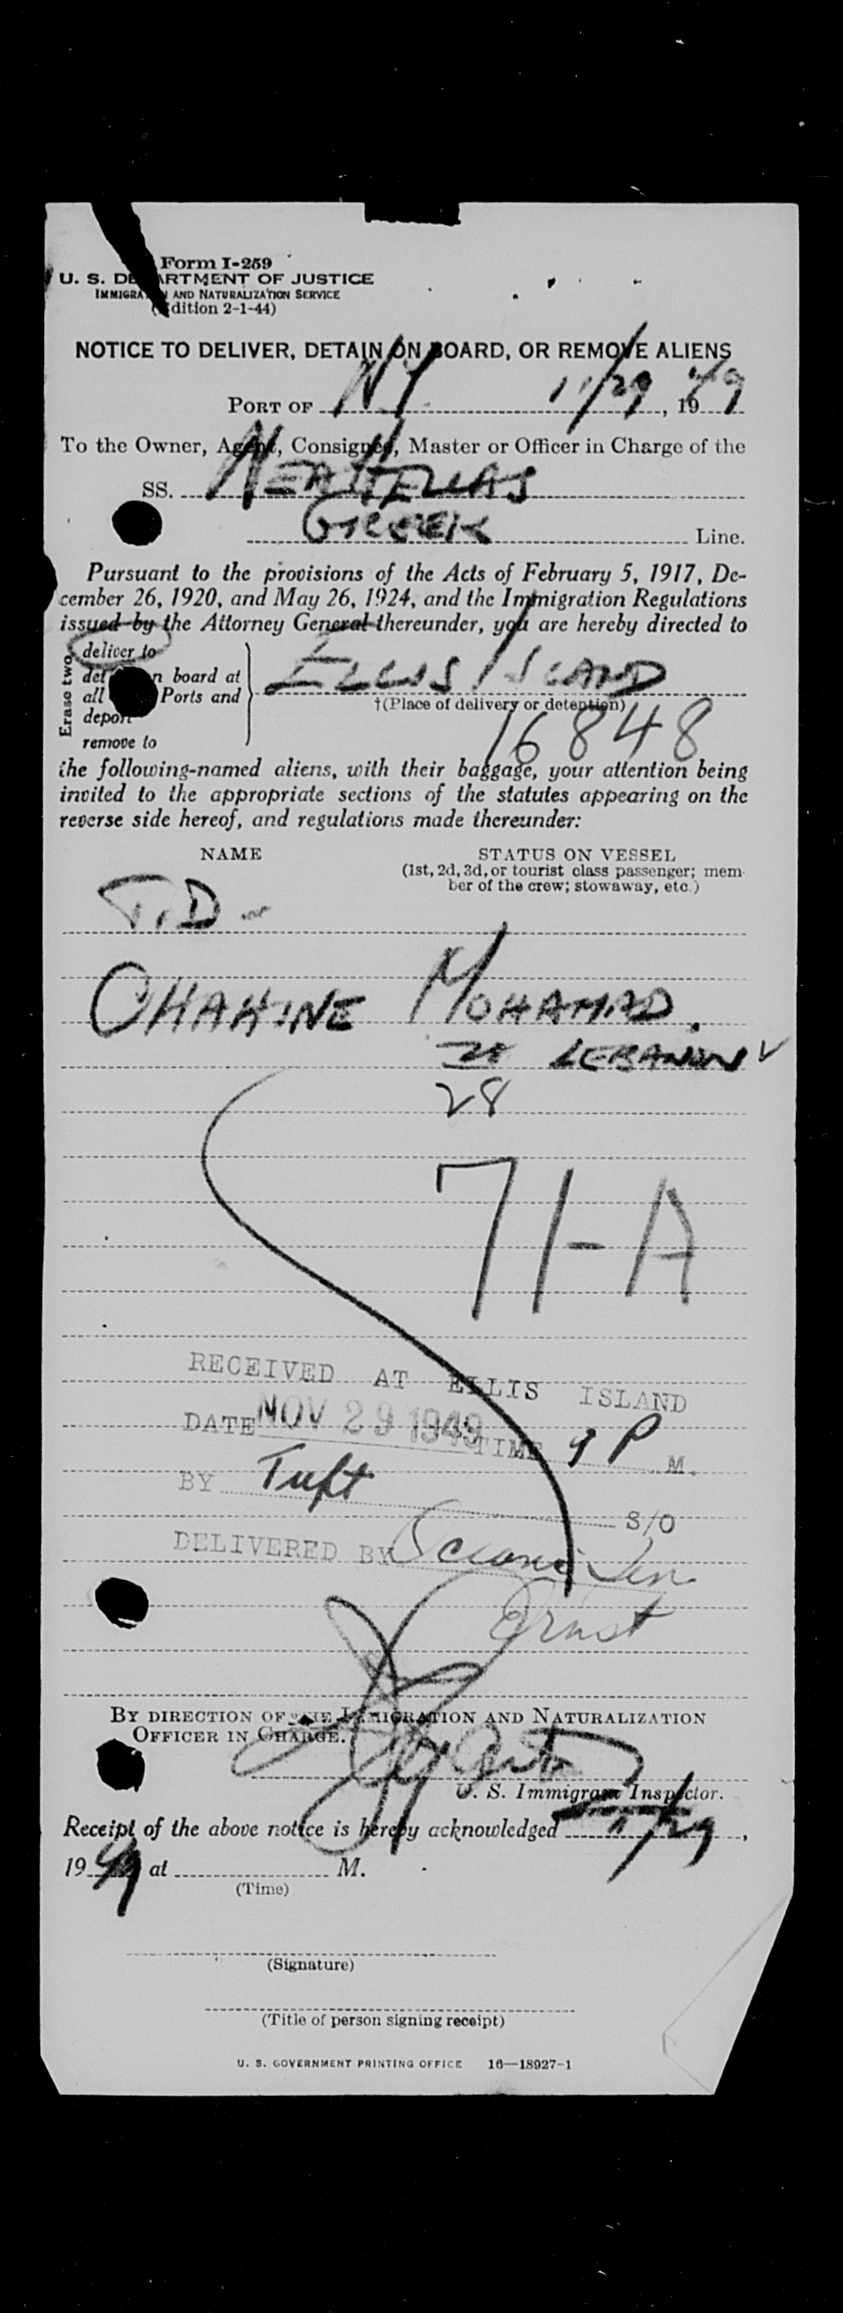 Form I-259
U. S. DEPARTMENT OF JUSTICE
IMMIGRATION AND NATURALIZATION SERVICE
(Edition 2-1-44)
NOTICE TO DELIVER, DETAIN ON BOARD, OR REMOVE ALIENS
PORT OF NY 11/29, 1949
To the Owner, Agent, Consignee, Master or Officer in Charge of the
SS. NEA HELLAS
GREEK Line.
Pursuant to the provisions of the Acts of February 5, 1917, De-
cember 26, 1920, and May 26, 1924, and the Immigration Regulations
issued by the Attorney General thereunder, you are hereby directed to
Erase two
deliver to
det n board at
all Ports and
deport
remove to
ELLIS ISLAND
†(Place of delivery or detention)
16848
the following-named aliens, with their baggage, your attention being
invited to the appropriate sections of the statutes appearing on the
reverse side hereof, and regulations made thereunder:
NAME STATUS ON VESSEL
(1st, 2d, 3d, or tourist class passenger; mem-
ber of the crew; stowaway, etc.)
T.D -
CHAHINE MOHAMAD.
LEBANON ✓
28
71-A
RECEIVED AT ELLIS ISLAND
DATE NOV 29 1949 TIME 9 P M.
BY Tuft S/O
DELIVERED BY
BY DIRECTION OF THE IMMIGRATION AND NATURALIZATION
OFFICER IN CHARGE.
U. S. Immigrant Inspector.
Receipt of the above notice is hereby acknowledged 11/29,
1949 at M.
(Time)
(Signature)
(Title of person signing receipt)
U. S. GOVERNMENT PRINTING OFFICE 16—18927-1